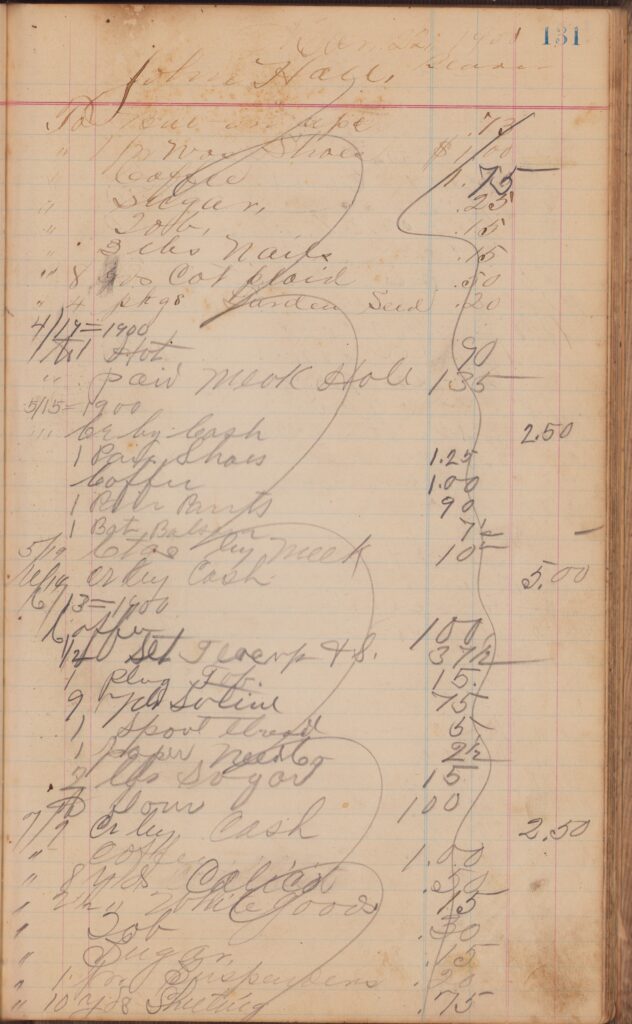 131
22, 1900
John Hall,
To .75
" 1 pr Shoes $1.00
" Coffee .75
" Sugar, .25
" Tob, .15
" 3 lbs Nails .15
" 8 yds Cot plaid .50
" 4 pkgs Garden Seed .20
4/14=1900
1 Hat 90
" paid Meek Hall 135
5/15=1900
" Cr by Cash 2.50
1 Pair Shoes 1.25
Coffee 1.00
1 Pair Pants 90
1 Bot Balsam
5/19 by Meek 10
Cr by Cash 5.00
6/13=1900
Coffee 100
1/2 Set T 37 1/2
1 Plug Tob. 15
9 Yds 45
1 Spool thread 5
1 paper Needles 2 1/2
2 lbs Sugar 15
100
7/2 Cr by Cash 2.50
" Coffee 1.00
" 8 yds Calico .50
" 2 1/2 " White Goods .15
" Tob .30
" Sugar, .15
" 1 pr. Suspenders .20
" 10 Yds Shirting .75